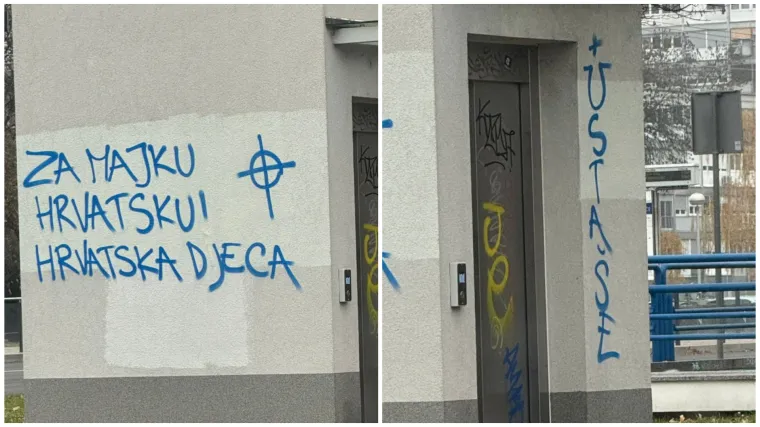 ZA MAJKU
HRVATSKU!
HRVATSKA DJECA
USTAŠE